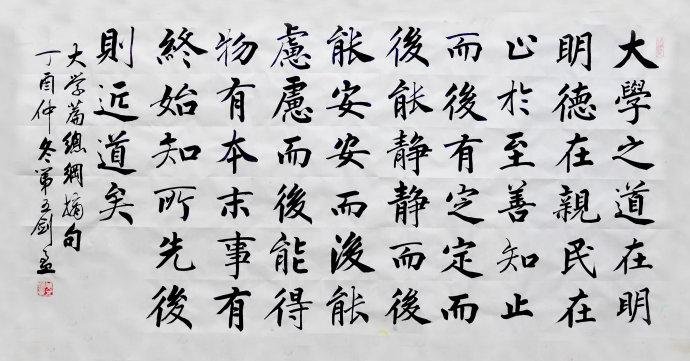 大學之道在明
明德在親民在
止於至善知止
而後有定定而
後能静静而後
能安安而後能
慮慮而後能得
物有本末事有
終始知所先後
則近道矣
大学篇總綱摘句
丁酉仲冬第五剑